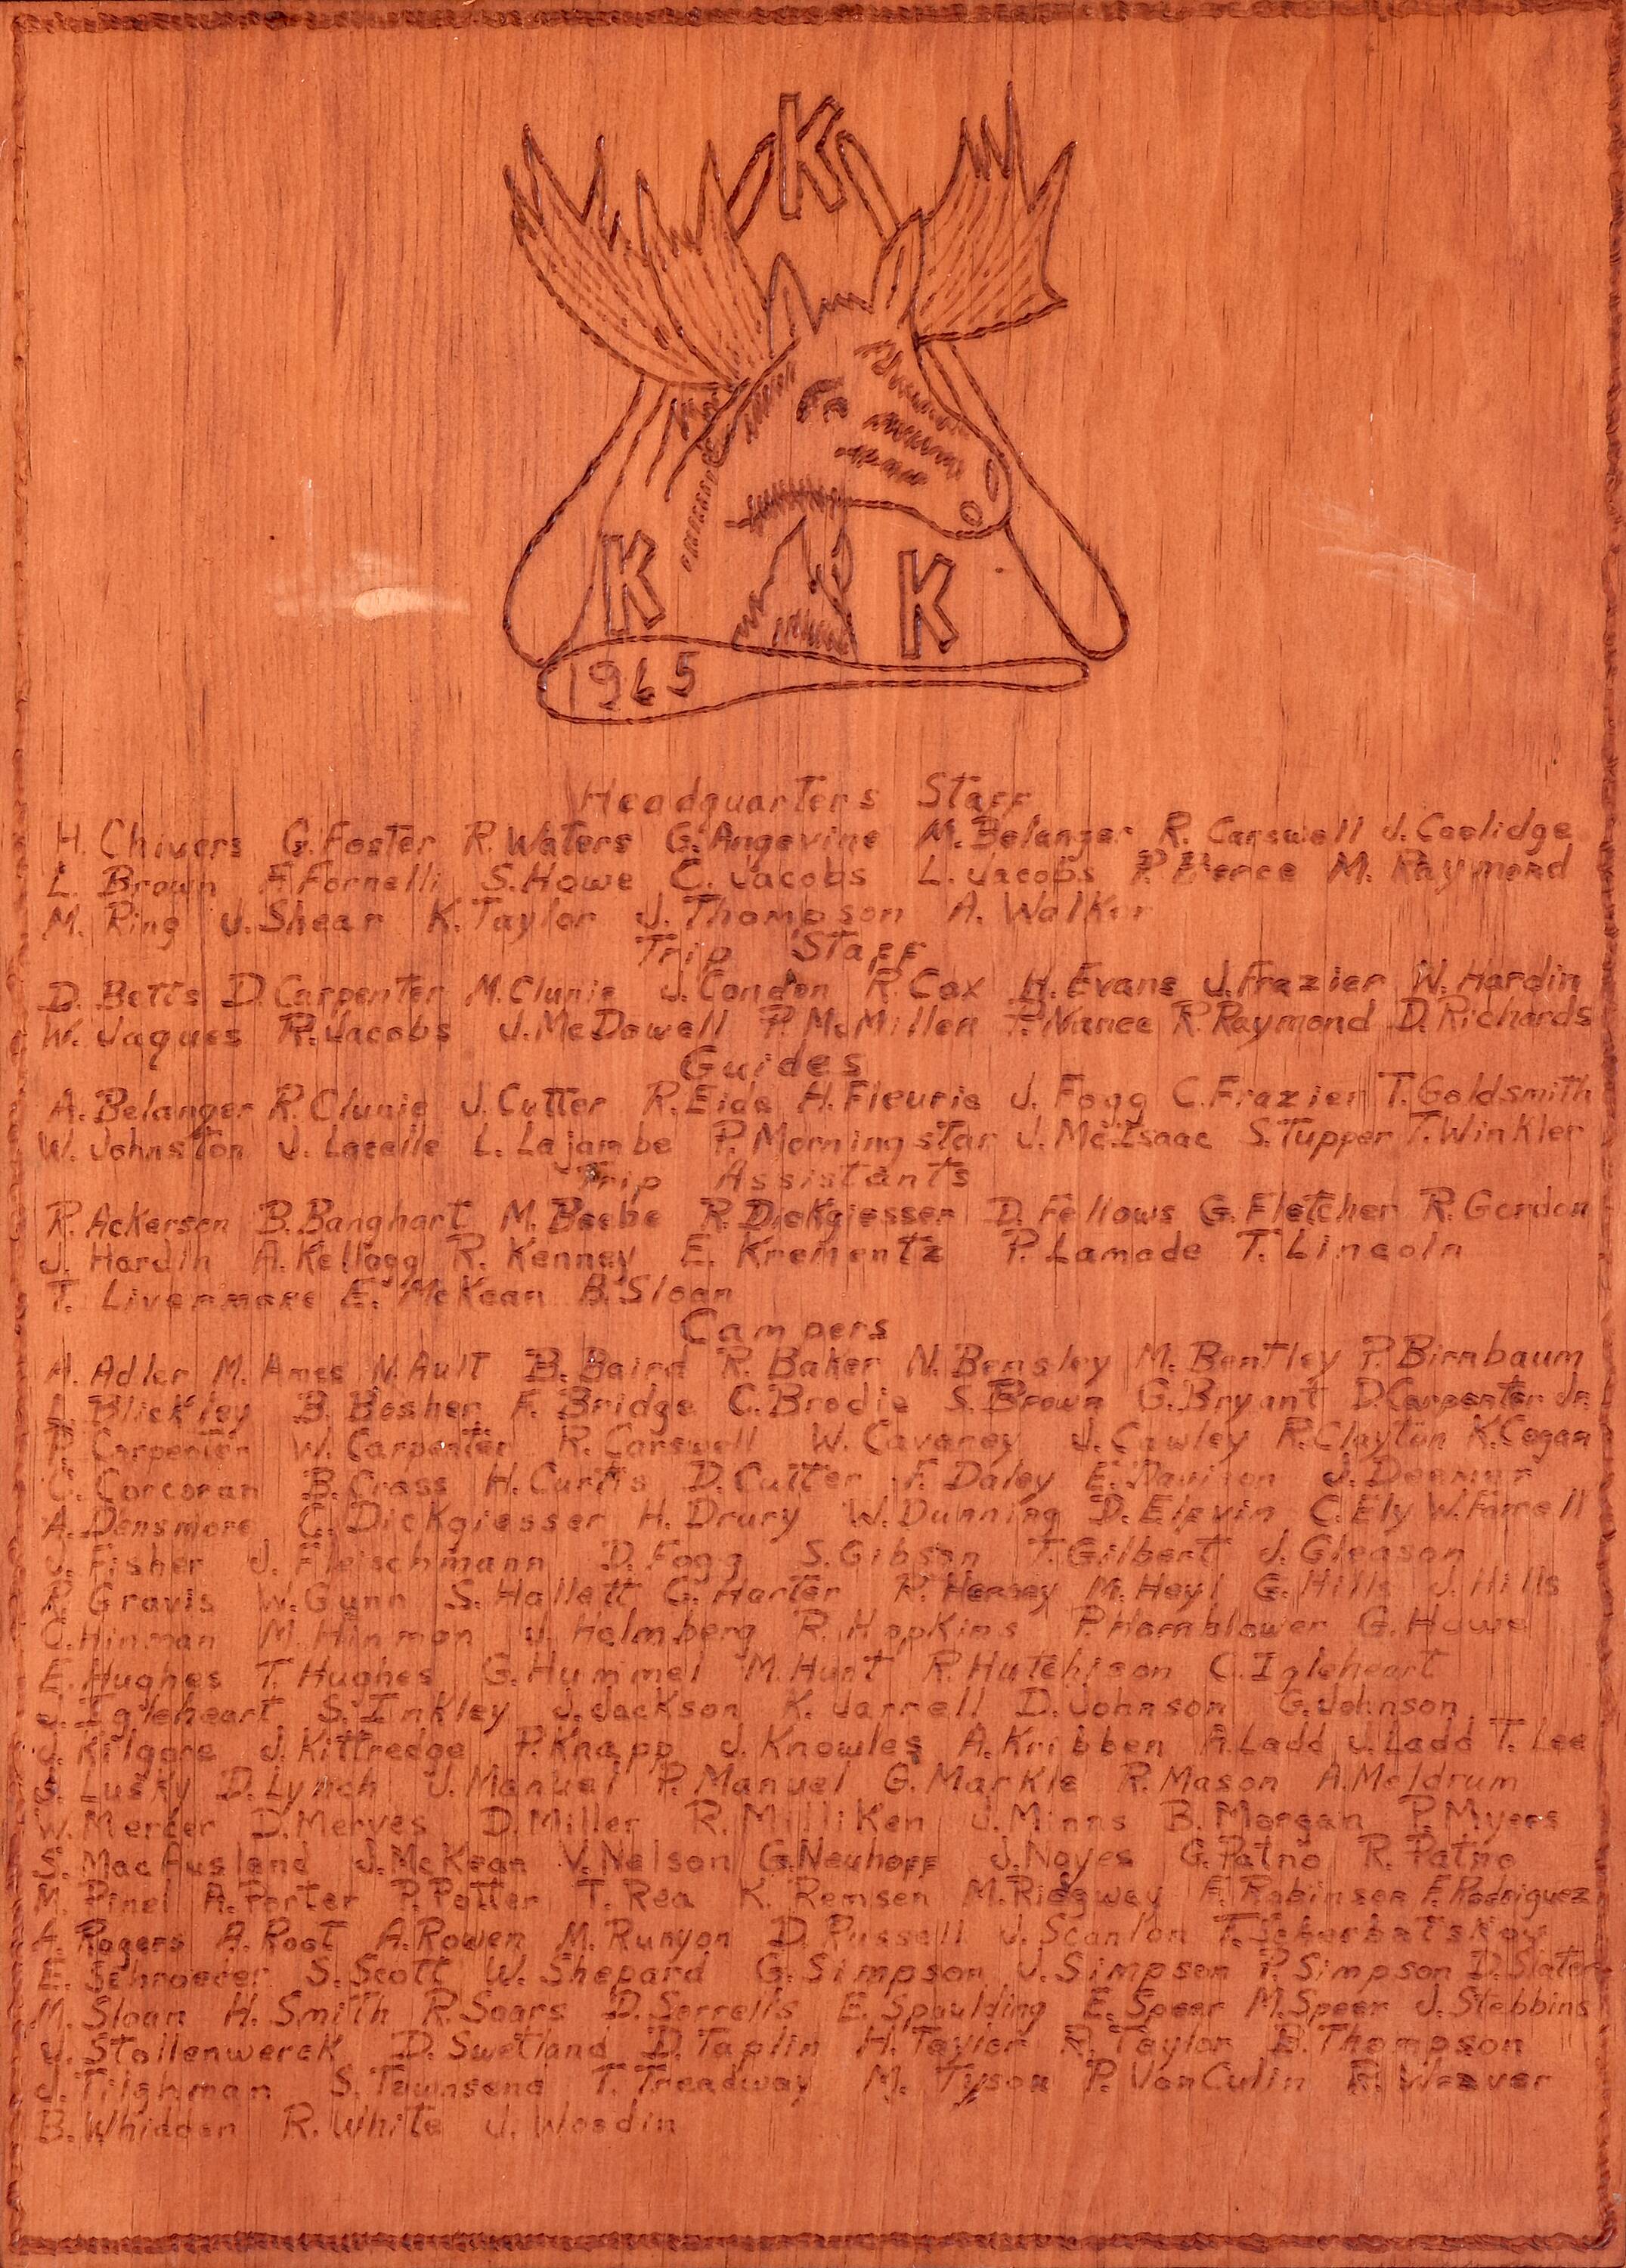 K
K K
1965
Headquarters Staff
H. Chivers G. Foster R. Waters G. Angevine M. Belanger R. Carswell J. Coolidge
L. Brown F. Fornelli S. Howe C. Jacobs L. Jacobs P. Pierce M. Raymond
M. Ring J. Shear K. Taylor J. Thompson A. Walker
Trip Staff
D. Betts D. Carpenter M. Clunie J. Condon R. Cox H. Evans J. Frazier W. Hardin
W. Jaques R. Jacobs J. McDowell P. McMillen P. Nance R. Raymond D. Richards
Guides
A. Belanger R. Clunie J. Cutter R. Eide H. Fleurie J. Fogg C. Frazier T. Goldsmith
W. Johnston J. Lacelle L. Lajambe P. Morningstar J. McIsaac S. Tupper T. Winkler
Trip Assistants
R. Ackerson B. Banghart M. Beebe R. Dickgiesser D. Fellows G. Fletcher R. Gordon
J. Hardin A. Kellogg R. Kenney E. Krementz P. Lamade T. Lincoln
T. Livermore E. McKean B. Sloan
Campers
A. Adler M. Ames N. Ault B. Baird R. Baker N. Bensley M. Bentley P. Birnbaum
L. Blickley B. Bosher F. Bridge C. Brodie S. Brown G. Bryant D. Carpenter Jr.
P. Carpenter W. Carpenter R. Carswell W. Caveney J. Cawley R. Clayton K. Cogan
C. Corcoran B. Crass H. Curtis D. Cutter F. Daley E. Davison J. Deemer
A. Densmore C. Dickgiesser H. Drury W. Dunning D. Elevin C. Ely W. Farrell
J. Fisher J. Fleischmann D. Fogg S. Gibson T. Gilbert J. Gleason
R. Gravis W. Gunn S. Hallett G. Harter R. Hersey M. Heyl G. Hills J. Hills
C. Hinman M. Hinman J. Holmberg R. Hopkins P. Hornblower G. Howe
E. Hughes T. Hughes G. Hummel M. Hunt R. Hutchison C. Igleheart
J. Igleheart S. Inkley J. Jackson K. Jarrell D. Johnson G. Johnson
J. Kilgore J. Kittredge P. Knapp J. Knowles A. Kribben A. Ladd J. Ladd T. Lee
S. Lusky D. Lynch J. Manuel P. Manuel G. Markle R. Mason A. Meldrum
W. Mercer D. Merves D. Miller R. Milliken J. Minns B. Morgan P. Myers
S. MacAusland J. McKean V. Nelson G. Neuhoff J. Noyes G. Patno R. Patno
M. Pinel A. Porter P. Potter T. Rea K. Remsen M. Ridgway F. Robinson F. Rodriguez
A. Rogers A. Root A. Rowen M. Runyon D. Russell J. Scanlon T. Scherbatskoy
E. Schroeder S. Scott W. Shepard G. Simpson J. Simpson P. Simpson D. Slater
M. Sloan H. Smith R. Soars D. Sorrells E. Spaulding E. Speer M. Speer J. Stebbins
J. Stollenwerck D. Swetland D. Taplin H. Taylor R. Taylor B. Thompson
J. Tilghman S. Townsend T. Treadway M. Tyson P. VanCulin R. Weaver
B. Whidden R. White J. Woodin